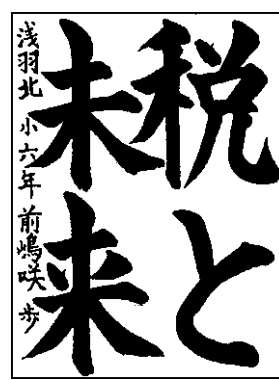 税と
未来
浅羽北小六年前嶋咲歩